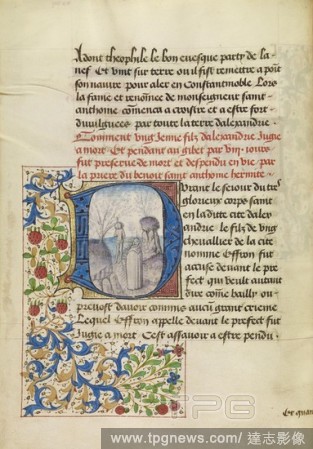 Adont theophile le bon evesque party de la
nef Et vint sur terre ou il fist remettre a point
son navire pour aler en Constantinoble Lors
la fame et renomee de monseigneur saint
anthoine comenca a croistre et a estre fort
divulguees par toute la terre dalexandrie.
Comment ung Jenne filz dalexandrie Jugie
a mort. Et pendant au gibet par viii. iours
fut preserve de mort et despendu en vie par
la priere du benoit saint anthoine hermite.
Durant le seiour du tres
glorieux corps saint
en ladite cite dalex
andrie le filz de ung
chevallier de la cite
nomme Effron fut
accuse devant le pre
fect qui veult autant
dire come bailly ou
prevost davoir commis aucun grant crieme
Lequel Effron appelle devant le prefect fut
Jugie a mort Cest assavoir a estre pendu.
Et quant
TPG
www.tpgnews.com/ 達志影像